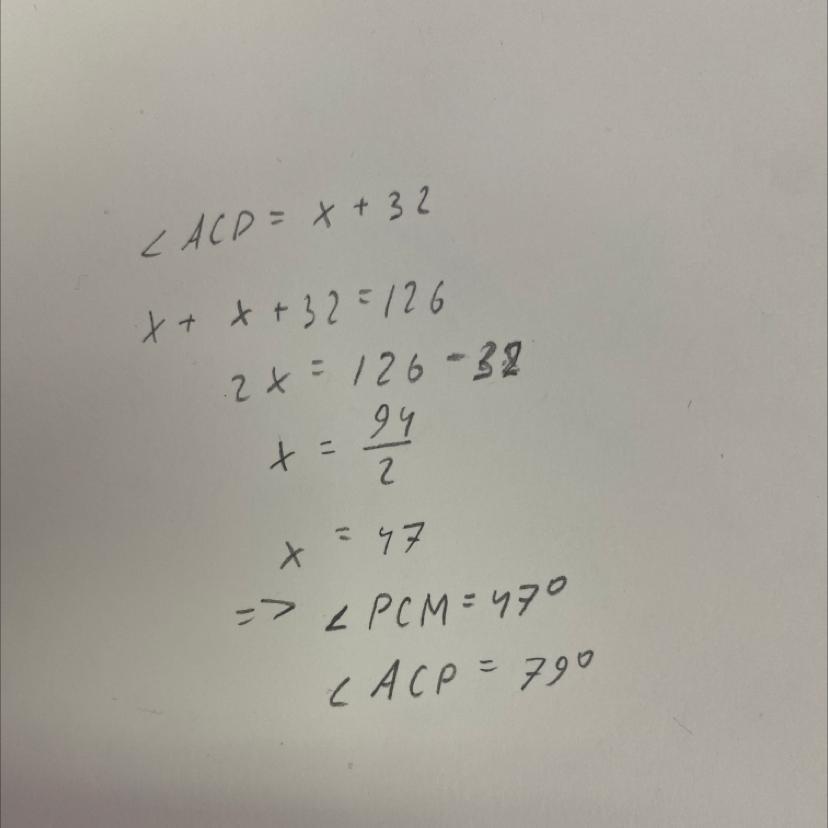 ∠ ACD = x + 32
x + x + 32 = 126
2x = 126 - 32
x = 94/2
x = 47
=> ∠ PCM = 47°
∠ ACP = 79°